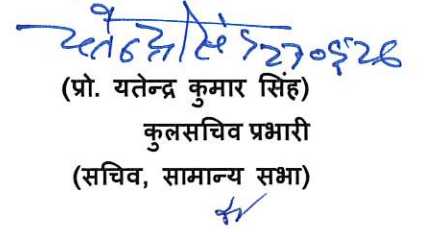 यतेन्द्र सिंह 270526
(प्रो. यतेन्द्र कुमार सिंह)
कुलसचिव प्रभारी
(सचिव, सामान्य सभा)